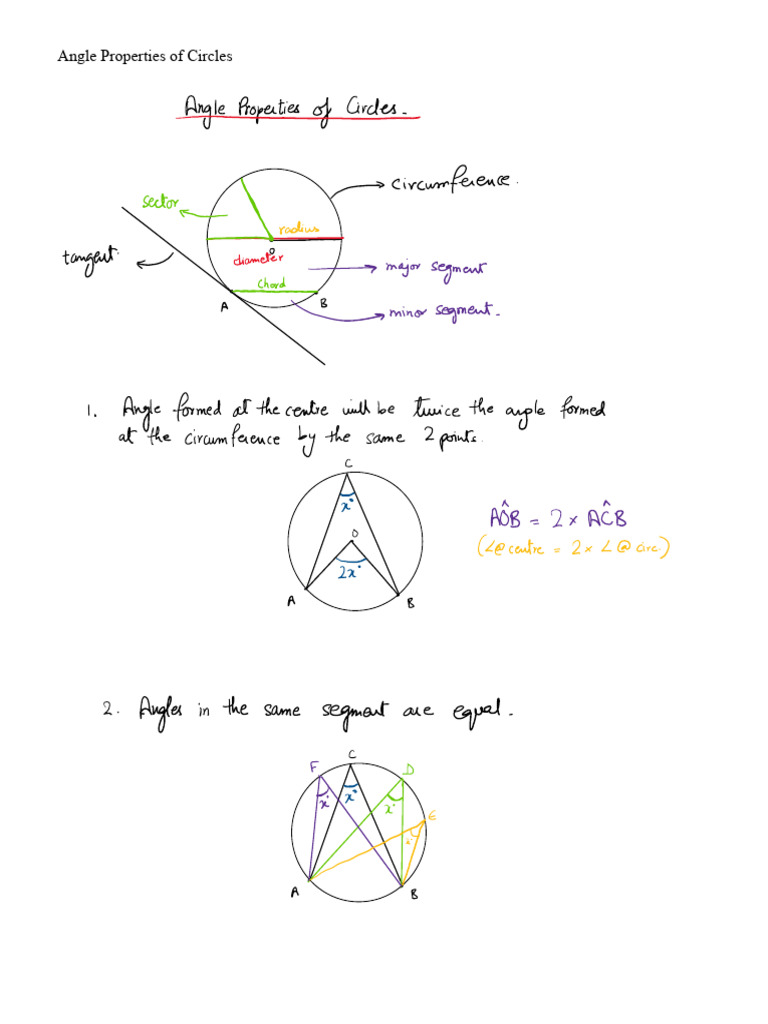 Angle Properties of Circles
Angle Properties of Circles.
circumference.
sector
radius
tangent
O
diameter
major segment
chord
A
B
minor segment.
1. Angle formed at the centre will be twice the angle formed
at the circumference by the same 2 points.
C
x°
AÔB = 2 x AĈB
O
(∠@ centre = 2 x ∠ @ circ)
2x°
A
B
2. Angles in the same segment are equal.
C
F
D
x°
x°
x°
E
x°
A
B